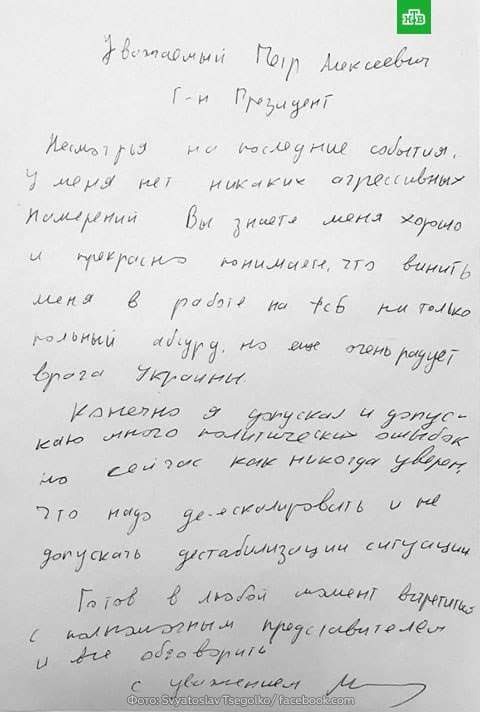 НТВ
Уважаемый Петр Алексеевич
Г-н Президент
Несмотрья на последние события,
у меня нет никаких агрессивных
намерений Вы знаете меня хорошо
и прекрасно понимаете, что винить
меня в работе на ФСБ ни только
полный абсурд, но еще очень радует
врага Украины.
Конечно я допускал и допус-
каю много политических ошыбок
но сейчас как никогда уверен,
что надо де-ескалировать и не
допускать дестабилизации ситуации
Готов в любой момент встретится
с полномочным представителем
и все обговорить
с уважением
Фото: Svyatoslav Tsegolko/ facebook.com